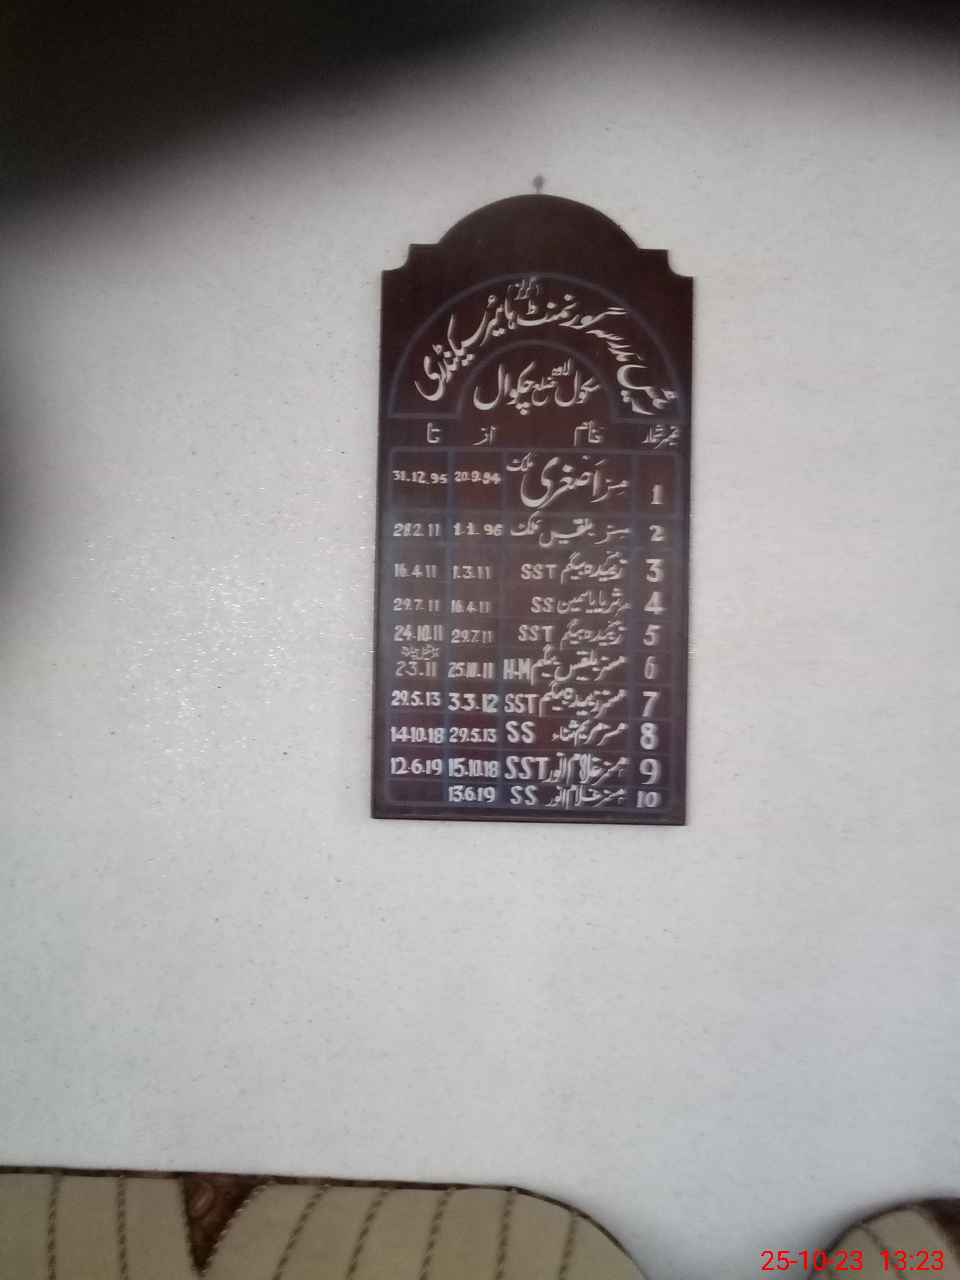 رئیس مدرسہ گورنمنٹ گرلز ہائیر سیکنڈری
سکول لاوہ ضلع چکوال
نمبر شمار نام از تا
1 مسز اصغری ملک 20.9.94 31.12.95
2 مسز بلقیس ملک 1.1.96 28.2.11
3 زبیدہ بیگم SST 1.3.11 16.4.11
4 ثریا یاسمین SS 16.4.11 29.7.11
5 زبیدہ بیگم SST 29.7.11 24.10.11
6 مسز بلقیس بیگم H.M 25.10.11 2.3.11
7 مسز زبیدہ بیگم SST 3.3.12 29.5.13
8 مسز مریم ثناء SS 29.5.13 14.10.18
9 مسز غلام انور SST 15.10.18 12.6.19
10 مسز غلام انور SS 13.6.19
25-10-23 13:23